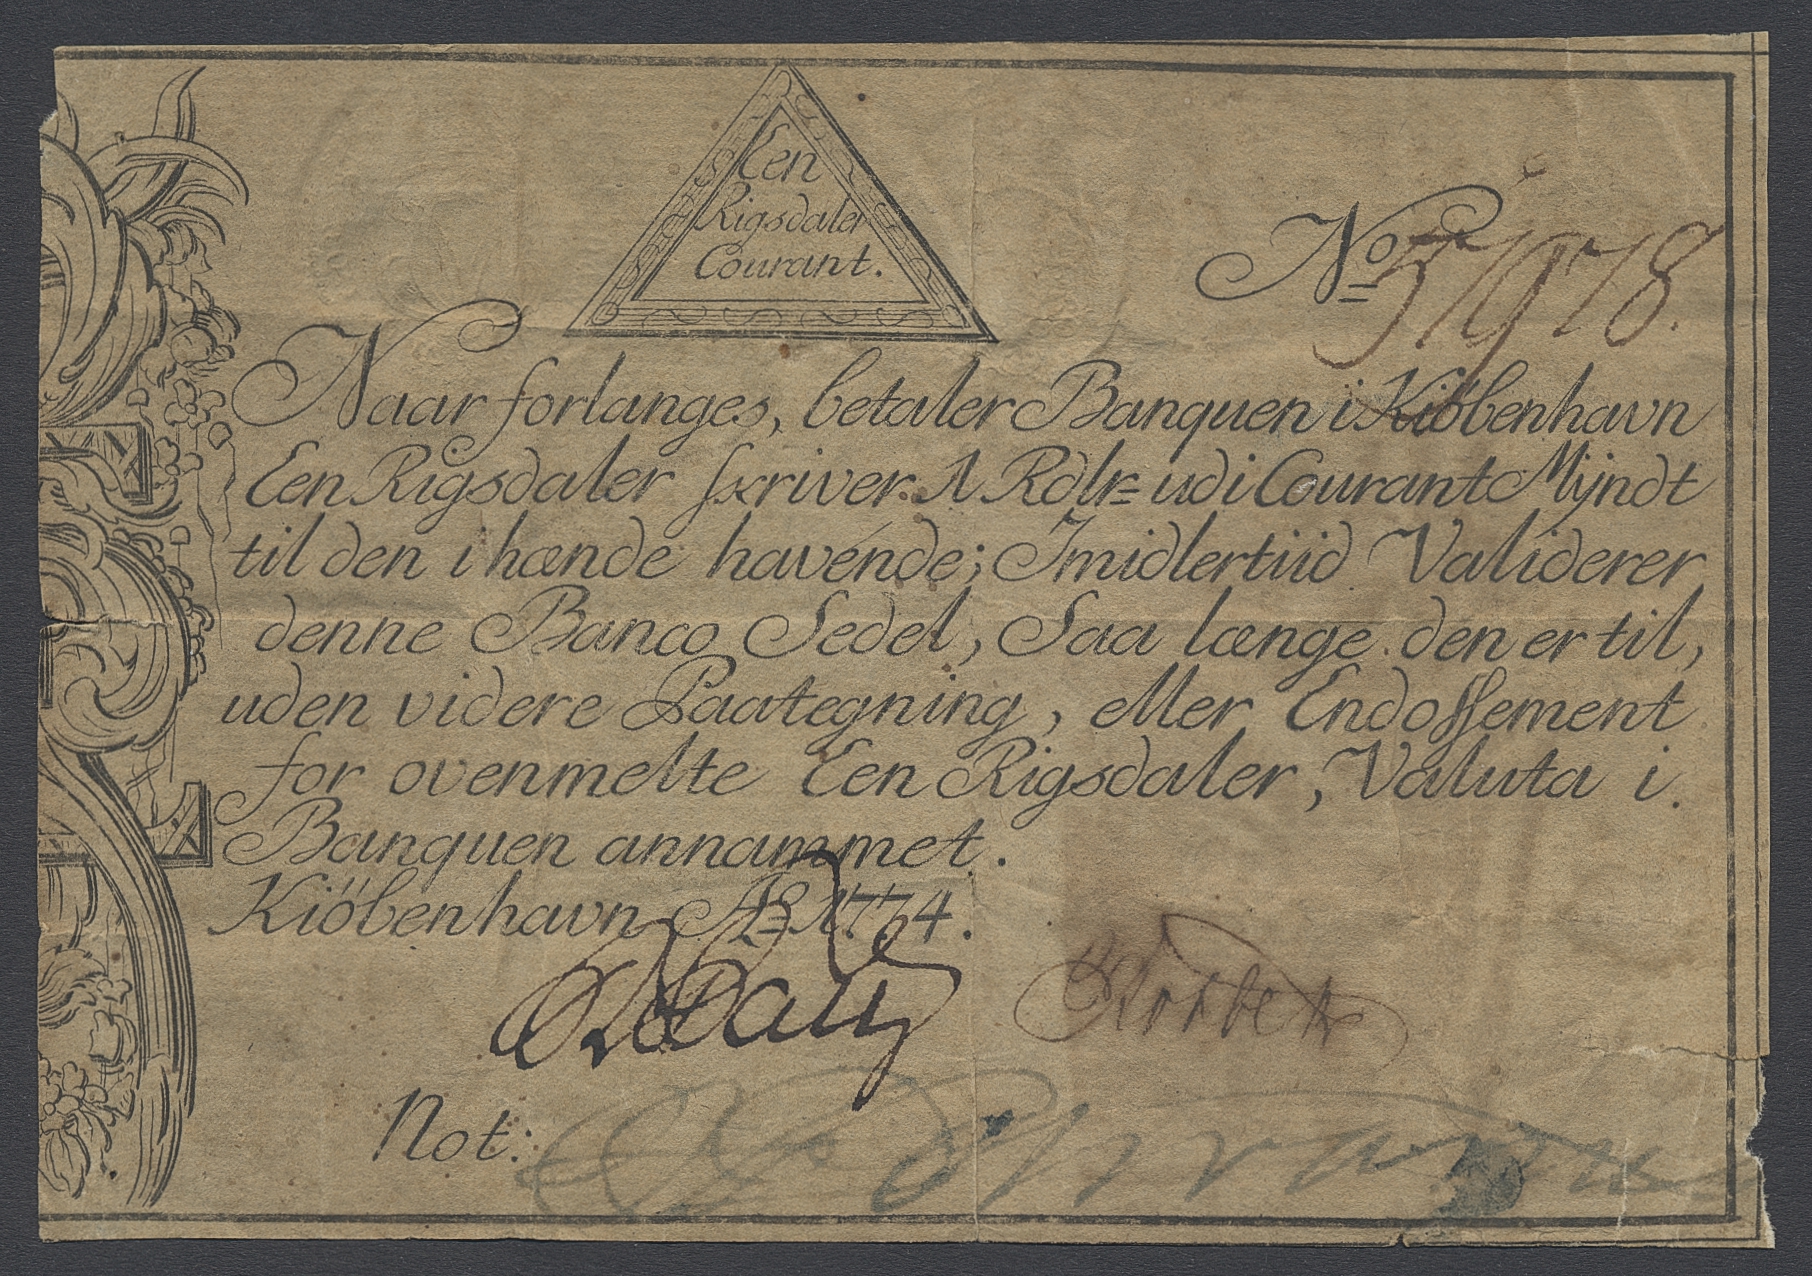 Een
Rigsdaler
Courant.
No 57978.
Naar forlanges, betaler Banquen i Kiöbenhavn
Een Rigsdaler skriver 1 Rdlr udi Courant Myndt
til den i hænde havende; Imidlertiid Validerer
denne Banco Sedel, Saa længe den er til,
uden videre Paategning, eller Endossement
for ovenmelte Een Rigsdaler, Valuta i
Banquen annammet.
Kiöbenhavn Ao 1774.
Not: